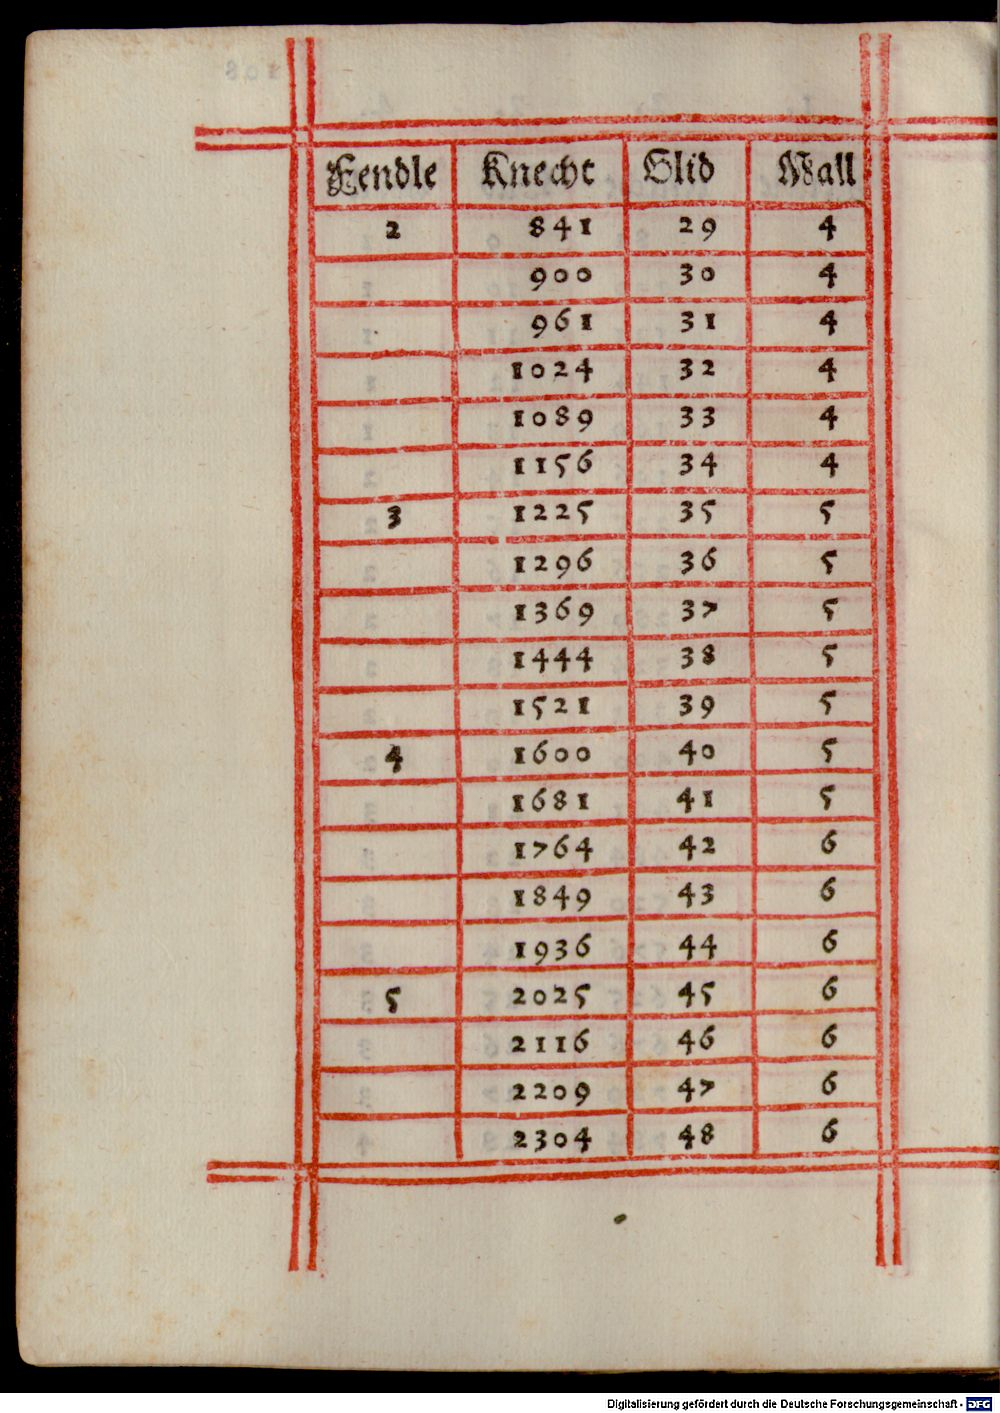 Fendle Knecht Glid Wall
2 841 29 4
900 30 4
961 31 4
1024 32 4
1089 33 4
1156 34 4
3 1225 35 5
1296 36 5
1369 37 5
1444 38 5
1521 39 5
4 1600 40 5
1681 41 5
1764 42 6
1849 43 6
1936 44 6
5 2025 45 6
2116 46 6
2209 47 6
2304 48 6
Digitalisierung gefördert durch die Deutsche Forschungsgemeinschaft - DFG